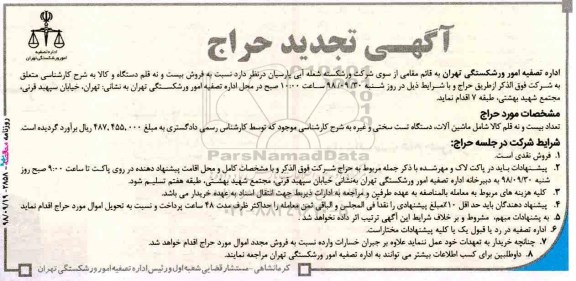 آگهی تجدید حراج
اداره تصفیه
امور ورشکستگی تهران
اداره تصفیه امور ورشکستگی تهران به قائم مقامی از سوی شرکت ورشکسته شعله آبی پارسیان درنظر دارد نسبت به فروش بیست و نه قلم دستگاه و کالا به شرح کارشناسی متعلق
به شرکت فوق الذکر ازطریق حراج و با شرایط ذیل در روز شنبه ۹۸/۰۹/۳۰ ساعت ۱۰:۰۰ صبح در محل اداره تصفیه امور ورشکستگی تهران به نشانی: تهران، خیابان سپهبد قرنی،
مجتمع شهید بهشتی، طبقه ۷ اقدام نماید.
مشخصات مورد حراج
تعداد بیست و نه قلم کالا شامل ماشین آلات، دستگاه تست سختی و غیره به شرح کارشناسی موجود که توسط کارشناس رسمی دادگستری به مبلغ ۴۸۷,۴۵۵,۰۰۰ ریال برآورد گردیده است.
شرایط شرکت در جلسه حراج:
۱. فروش نقدی است.
۲. پیشنهادات باید در پاکت لاک و مهرشده با ذکر جمله مربوط به حراج شرکت فوق الذکر و با مشخصات کامل و محل اقامت پیشنهاد دهنده در روی پاکت تا ساعت ۹:۰۰ صبح روز
شنبه ۹۸/۰۹/۳۰ به دبیرخانه اداره تصفیه امور ورشکستگی تهران به‌نشانی خیابان سپهبد قرنی، مجتمع شهید بهشتی، طبقه هفتم تسلیم شود.
۳. کلیه هزینه های مربوط به معامله بالمناصفه به عهده طرفین و مراجعه به ادارات ذیربط جهت انتقال اسناد به عهده خریدار می باشد.
۴. پیشنهاد دهندگان باید حد اقل ۱۰٪مبلغ پیشنهادی را نقداً فی المجلس و الباقی ثمن معامله را حداکثر ظرف مدت ۴۸ ساعت پرداخت و نسبت به تحویل اموال مورد حراج اقدام نماید
۵. به پشنهادات مبهم، مشروط و بر خلاف شرایط این آگهی ترتیب اثر داده نخواهد شد.
۶. اداره تصفیه در رد یا قبول یک یا کلیه پیشنهادات مختاراست.
۷. چنانچه خریدار به تعهدات خود عمل ننماید علاوه بر جبران خسارات وارده نسبت به فروش مجدد اموال مورد حراج اقدام خواهد شد.
۸. داوطلبین برای کسب اطلاعات بیشتر می توانند به اداره تصفیه امور ورشکستگی تهران مراجعه نمایند.
کرمانشاهی - مستشار قضایی شعبه اول و رئیس اداره تصفیه امور ورشکستگی تهران
ParsNamadData